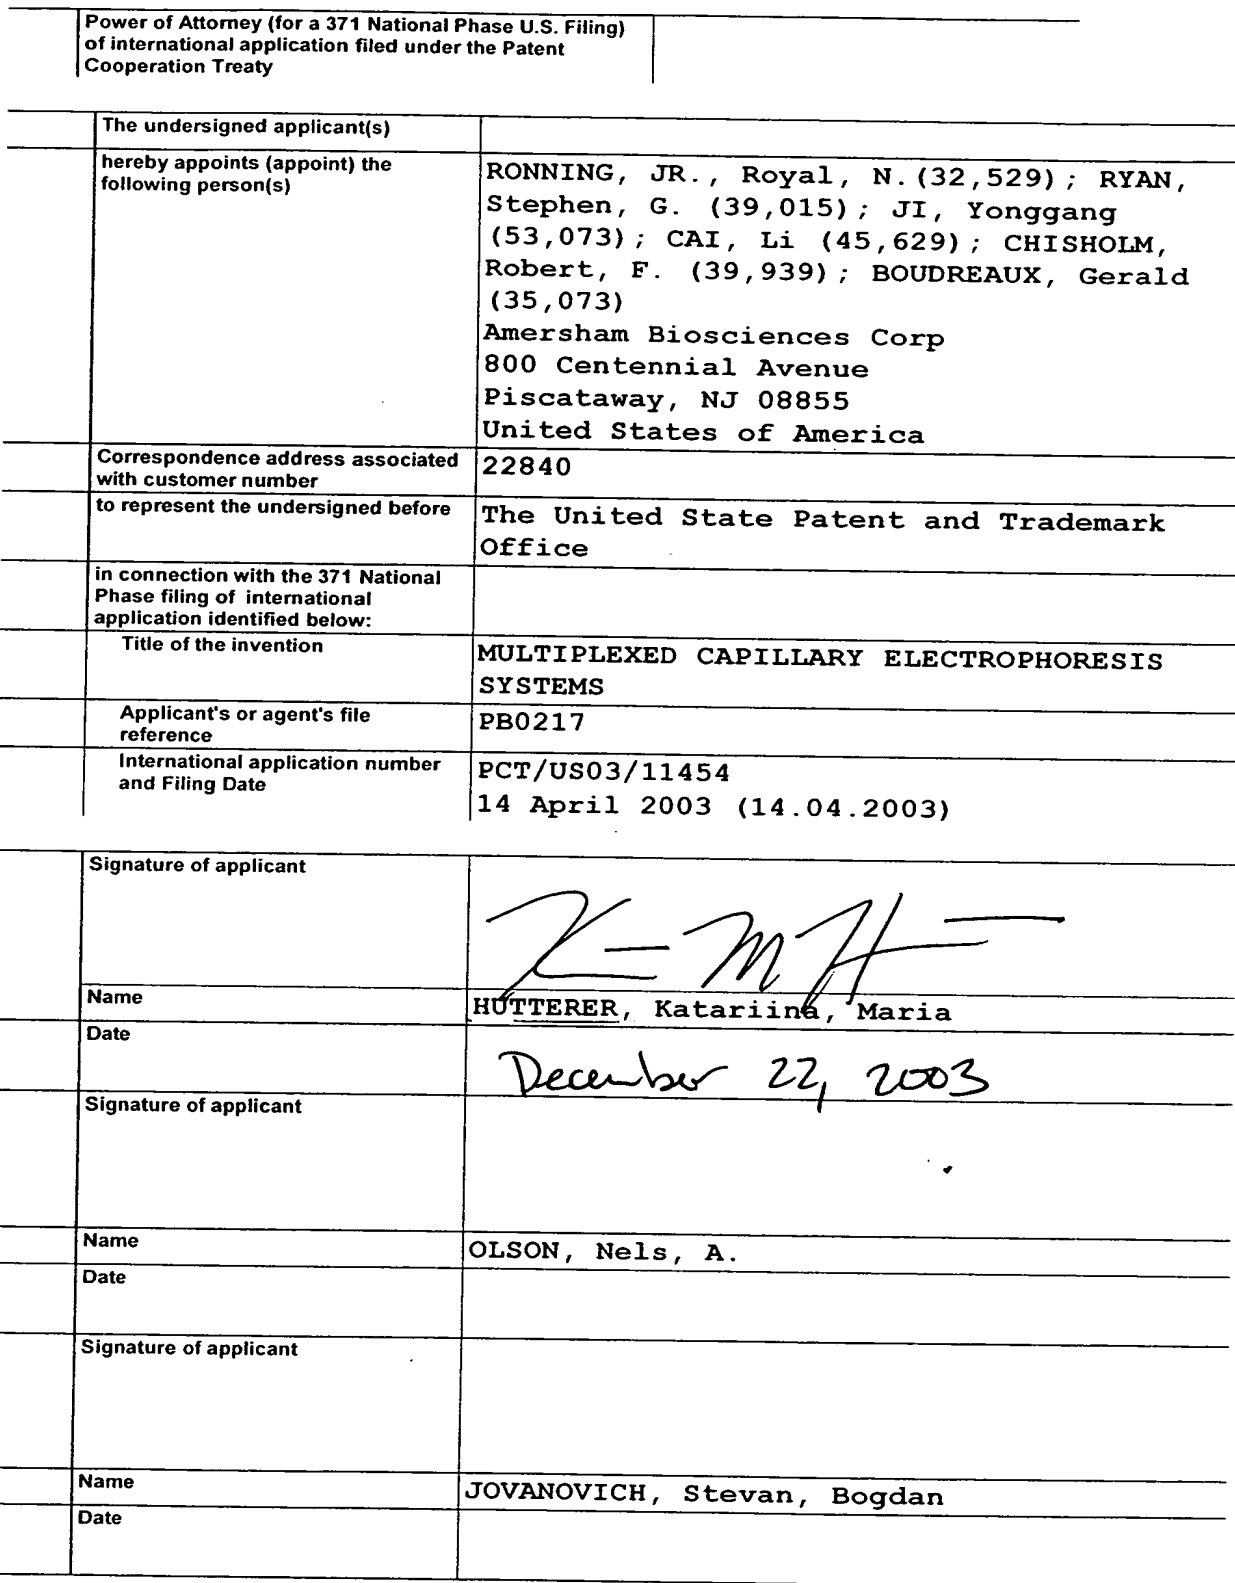 Power of Attorney (for a 371 National Phase U.S. Filing)
of international application filed under the Patent
Cooperation Treaty
The undersigned applicant(s)
hereby appoints (appoint) the
following person(s)
RONNING, JR., Royal, N.(32,529); RYAN,
Stephen, G. (39,015); JI, Yonggang
(53,073); CAI, Li (45,629); CHISHOLM,
Robert, F. (39,939); BOUDREAUX, Gerald
(35,073)
Amersham Biosciences Corp
800 Centennial Avenue
Piscataway, NJ 08855
United States of America
Correspondence address associated
with customer number
22840
to represent the undersigned before
The United State Patent and Trademark
Office
in connection with the 371 National
Phase filing of international
application identified below:
Title of the invention
MULTIPLEXED CAPILLARY ELECTROPHORESIS
SYSTEMS
Applicant's or agent's file
reference
PB0217
International application number
and Filing Date
PCT/US03/11454
14 April 2003 (14.04.2003)
Signature of applicant
Name
HUTTERER, Katariina, Maria
Date
December 22, 2003
Signature of applicant
Name
OLSON, Nels, A.
Date
Signature of applicant
Name
JOVANOVICH, Stevan, Bogdan
Date